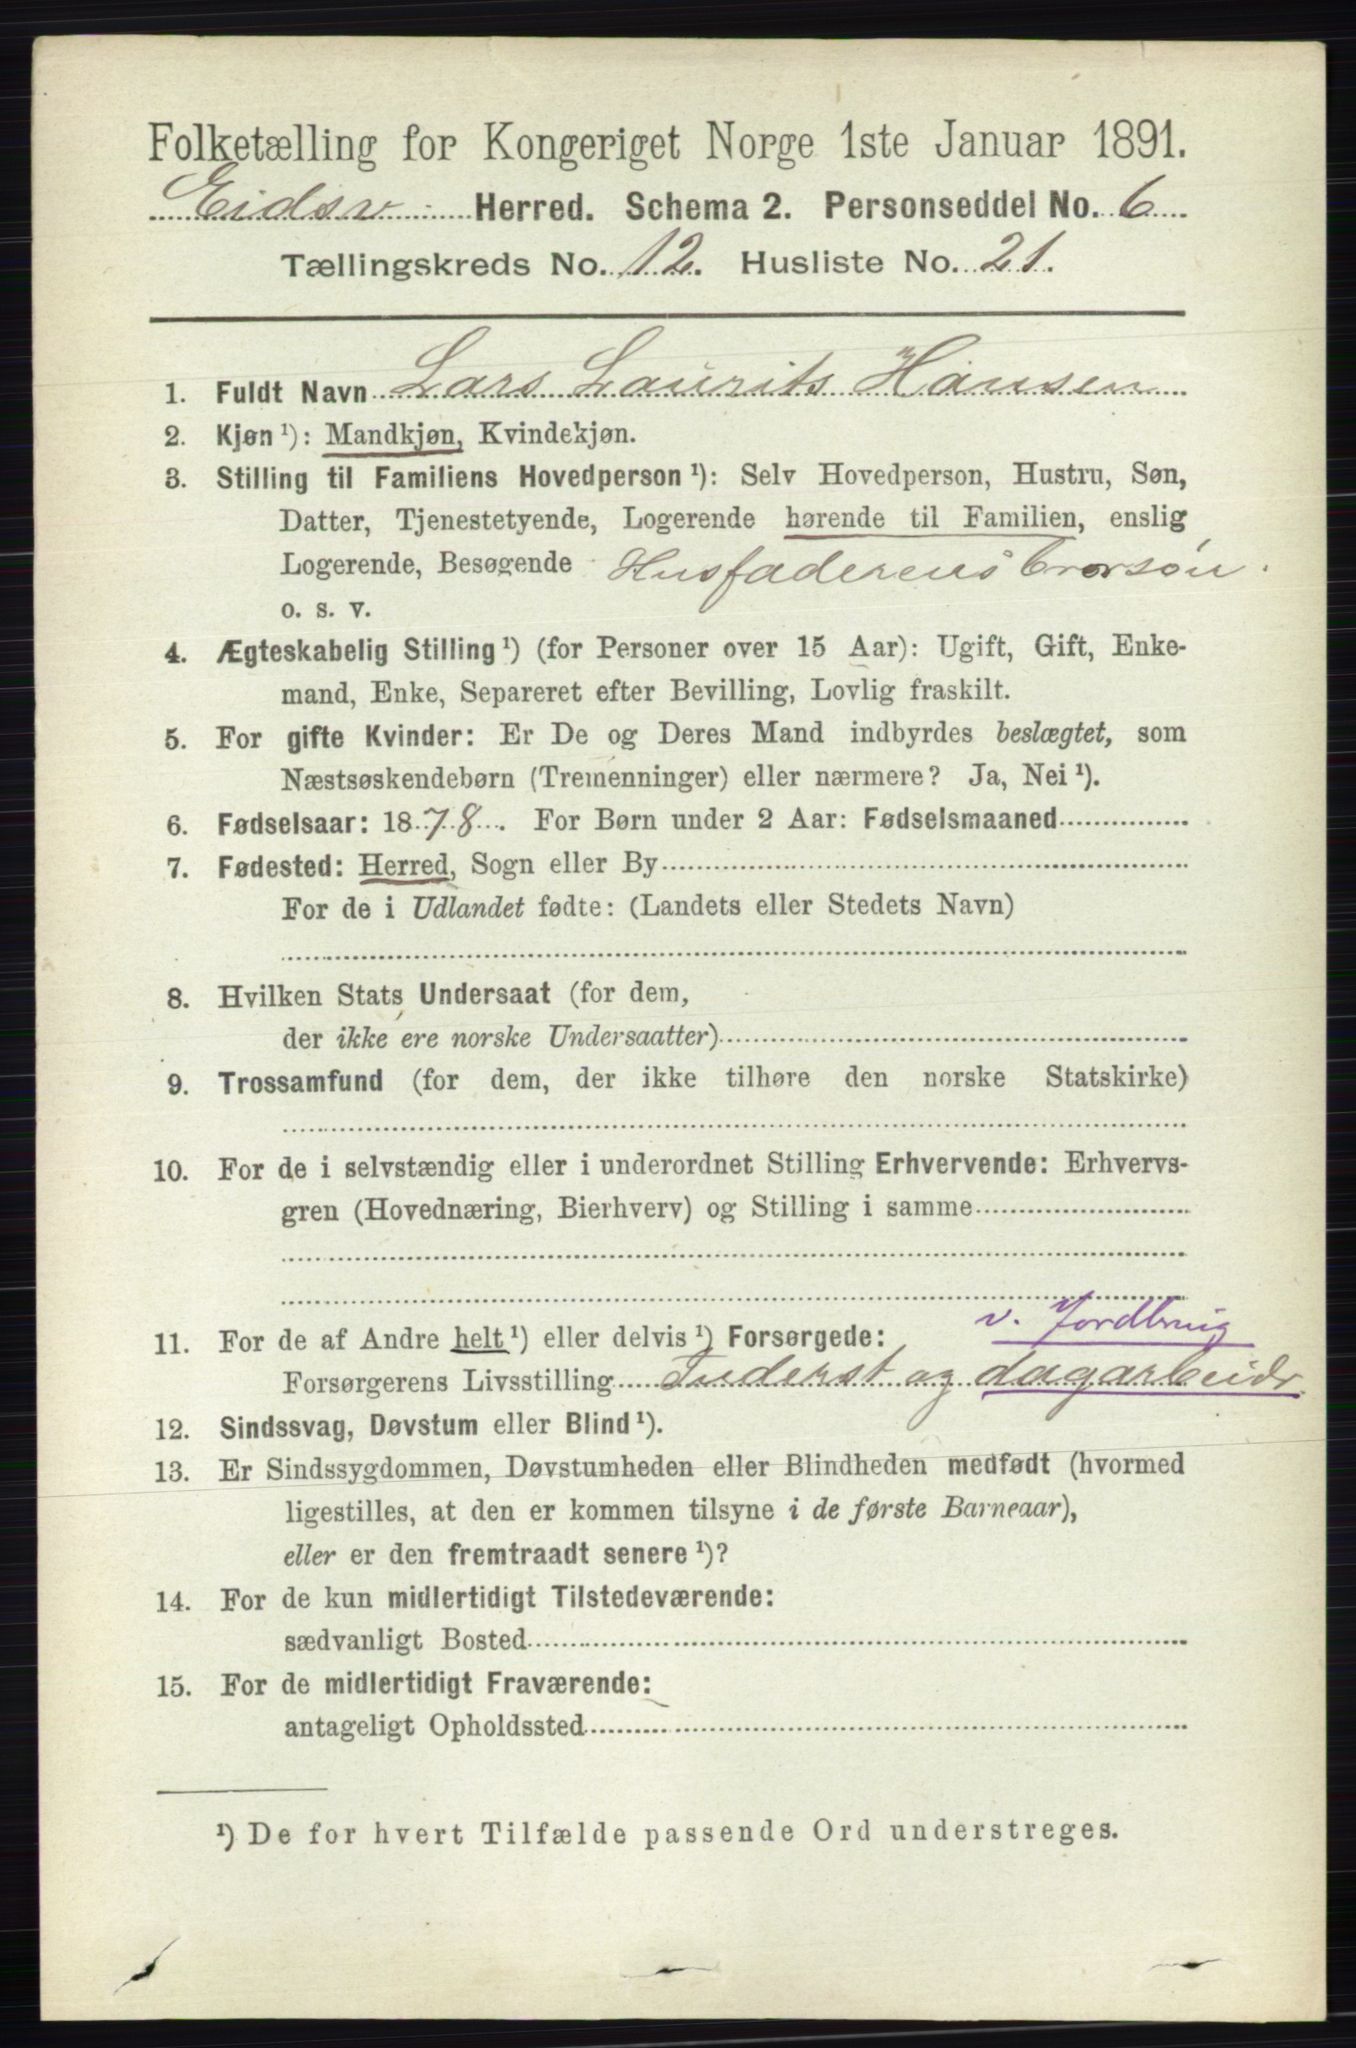 Folketælling for Kongeriget Norge 1ste Januar 1891.
Eidsv. Herred. Schema 2. Personseddel No. 6
Tællingskreds No. 12. Husliste No. 21.
1. Fuldt Navn Lars Laurits Hansen
2. Kjøn ¹): Mandkjøn, Kvindekjøn.
3. Stilling til Familiens Hovedperson ¹): Selv Hovedperson, Hustru, Søn,
Datter, Tjenestetyende, Logerende hørende til Familien, enslig
Logerende, Besøgende Husfaderens brorsøn.
o. s. v.
4. Ægteskabelig Stilling ¹) (for Personer over 15 Aar): Ugift, Gift, Enke-
mand, Enke, Separeret efter Bevilling, Lovlig fraskilt.
5. For gifte Kvinder: Er De og Deres Mand indbyrdes beslægtet, som
Næstsøskendebørn (Tremenninger) eller nærmere? Ja, Nei ¹).
6. Fødselsaar: 1878. For Børn under 2 Aar: Fødselsmaaned
7. Fødested: Herred, Sogn eller By
For de i Udlandet fødte: (Landets eller Stedets Navn)
8. Hvilken Stats Undersaat (for dem,
der ikke ere norske Undersaatter)
9. Trossamfund (for dem, der ikke tilhøre den norske Statskirke)
10. For de i selvstændig eller i underordnet Stilling Erhvervende: Erhvervs-
gren (Hovednæring, Bierhverv) og Stilling i samme
v. Jordbrug
11. For de af Andre helt ¹) eller delvis ¹) Forsørgede:
Forsørgerens Livsstilling Inderst og dagarbeidr.
12. Sindssvag, Døvstum eller Blind ¹).
13. Er Sindssygdommen, Døvstumheden eller Blindheden medfødt (hvormed
ligestilles, at den er kommen tilsyne i de første Barneaar),
eller er den fremtraadt senere ¹)?
14. For de kun midlertidigt Tilstedeværende:
sædvanligt Bosted
15. For de midlertidigt Fraværende:
antageligt Opholdssted
¹) De for hvert Tilfælde passende Ord understreges.